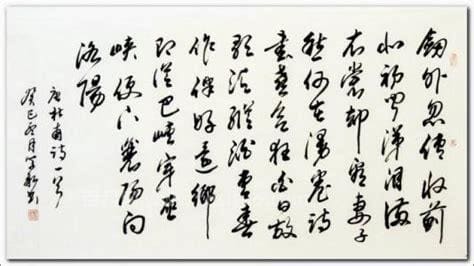 劔外忽傳收薊
北初聞涕淚滿
衣裳却看妻子
愁何在漫卷詩
書喜欲狂白日放
歌須縱酒青春
作伴好還鄉
即從巴峽穿巫
峽便下襄陽向
洛陽
唐杜甫詩一首
癸巳